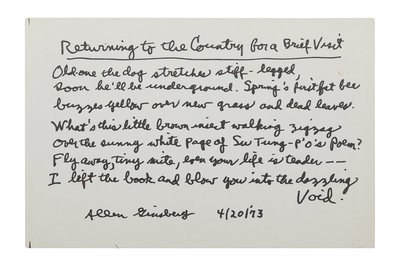 Returning to the Country for a Brief Visit
Old-one the dog stretches stiff-legged,
soon he'll be underground. Spring's first fat bee
buzzes yellow over new grass and dead leaves.
What's this little brown insect walking zigzag
over the sunny white page of Su Tung-p'o's Poem?
Fly away, tiny mite, even your life is tender --
I lift the book and blow you into the dazzling
Void.
Allen Ginsberg 4/20/73